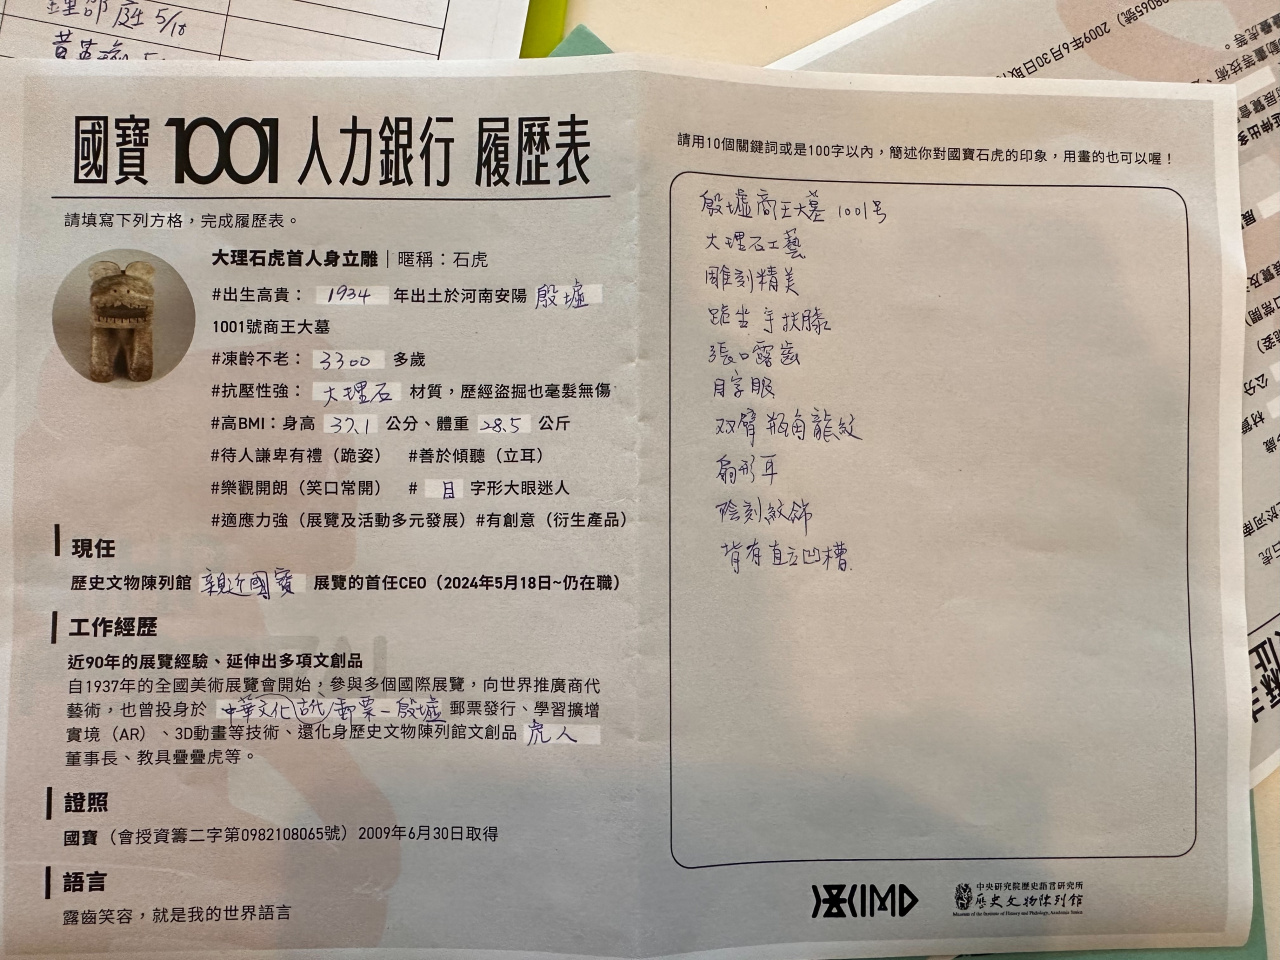 理部 5/18
國寶 1001 人力銀行 履歷表
請填寫下列方格，完成履歷表。
大理石虎首人身立雕｜暱稱：石虎
#出生高貴： 1934 年出土於河南安陽 殷墟
1001號商王大墓
#凍齡不老： 3300 多歲
#抗壓性強： 大理石 材質，歷經盜掘也毫髮無傷
#高BMI：身高 37.1 公分、體重 28.5 公斤
#待人謙卑有禮（跪姿） #善於傾聽（立耳）
#樂觀開朗（笑口常開） # 目 字形大眼迷人
#適應力強（展覽及活動多元發展）#有創意（衍生產品）
現任
歷史文物陳列館 親近國寶 展覽的首任CEO（2024年5月18日~仍在職）
工作經歷
近90年的展覽經驗、延伸出多項文創品
自1937年的全國美術展覽會開始，參與多個國際展覽，向世界推廣商代
藝術，也曾投身於 中華文化古代郵票－殷墟 郵票發行、學習擴增
實境（AR）、3D動畫等技術、還化身歷史文物陳列館文創品 虎人
董事長、教具疊疊虎等。
證照
國寶（會授資籌二字第0982108065號）2009年6月30日取得
語言
露齒笑容，就是我的世界語言
請用10個關鍵詞或是100字以內，簡述你對國寶石虎的印象，用畫的也可以喔！
殷墟商王大墓 1001号
大理石工藝
雕刻精美
跪坐 手扶膝
張口露齒
目字眼
双臂 瓶角龍紋
扇形耳
陰刻紋飾
背有直立凹槽
中央研究院歷史語言研究所
歷史文物陳列館
Museum of the Institute of History and Philology, Academia Sinica
08065號）2009年6月30日取
動畫等技術、
疊虎等。
展覽會
延伸出多
公分